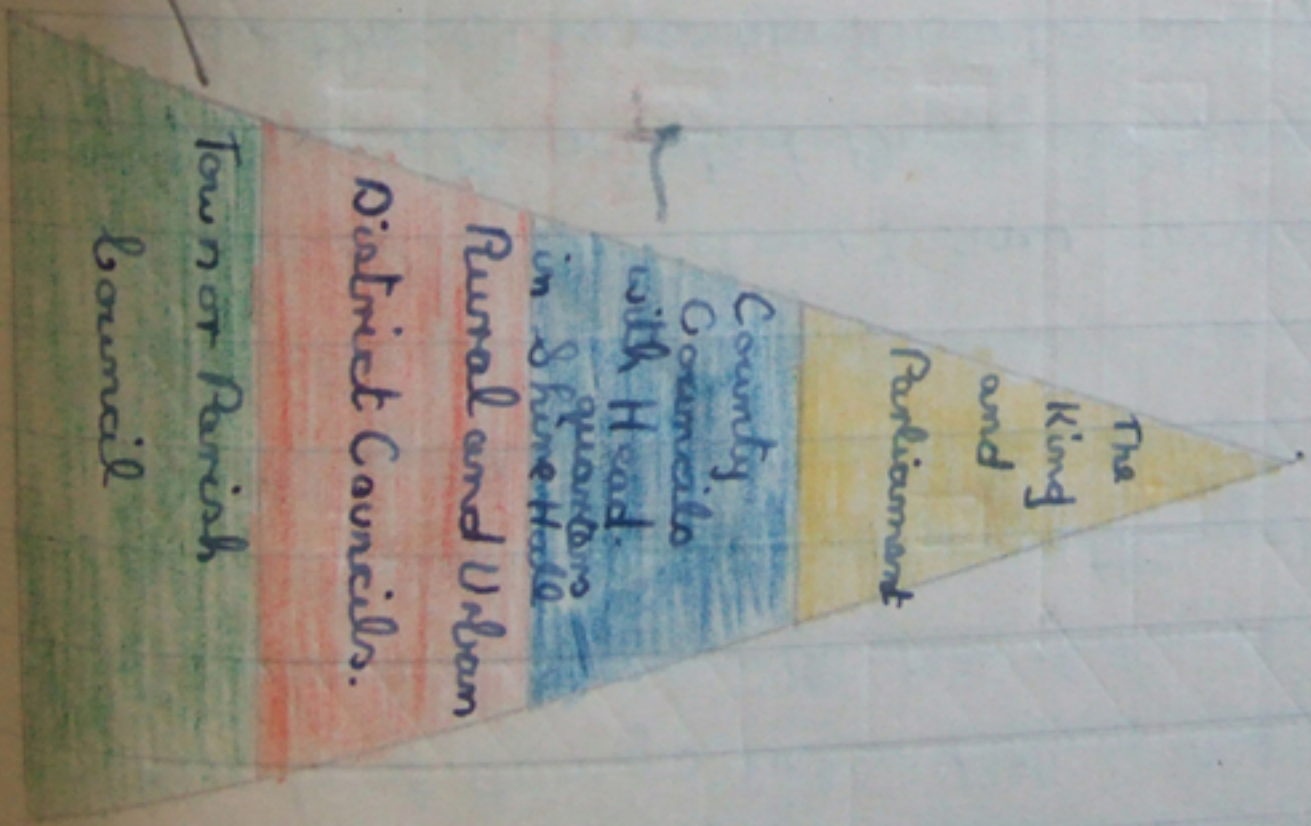 The
King
and
Parliament
County
Councils
with Head.
quarters
in Shire Hall
Rural and Urban
District Councils.
Town or Parish
Council